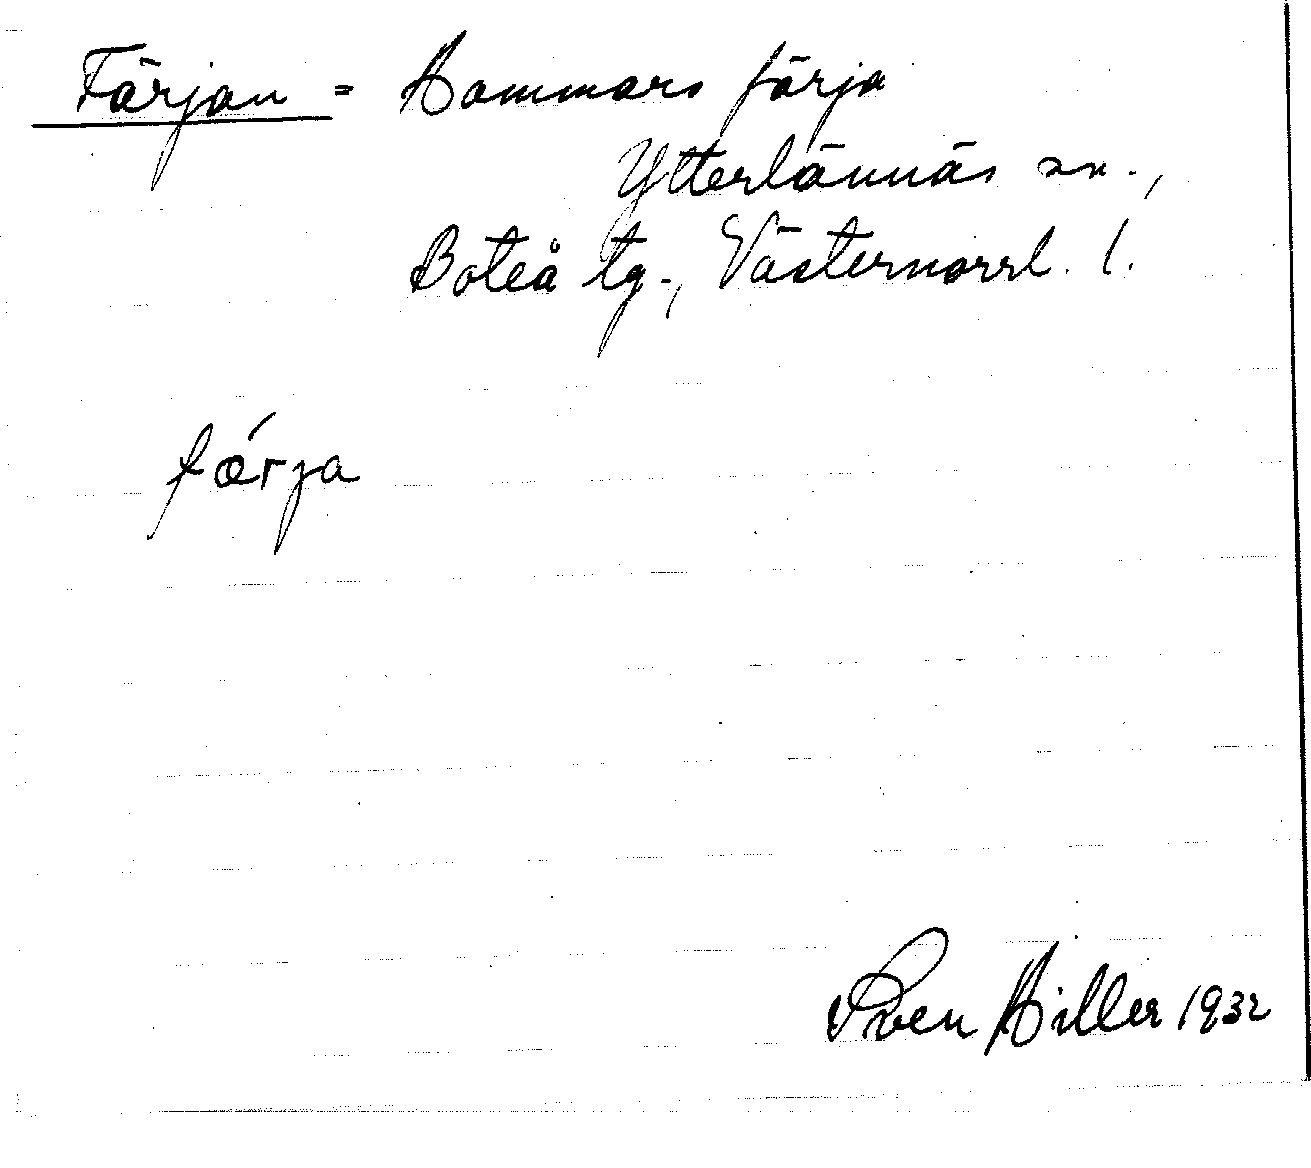 Färjan = Hammars färja
Ytterlännäs sn.,
Boteå tg., Västernorrl. l.
fǽrja
Sven Hiller 1932